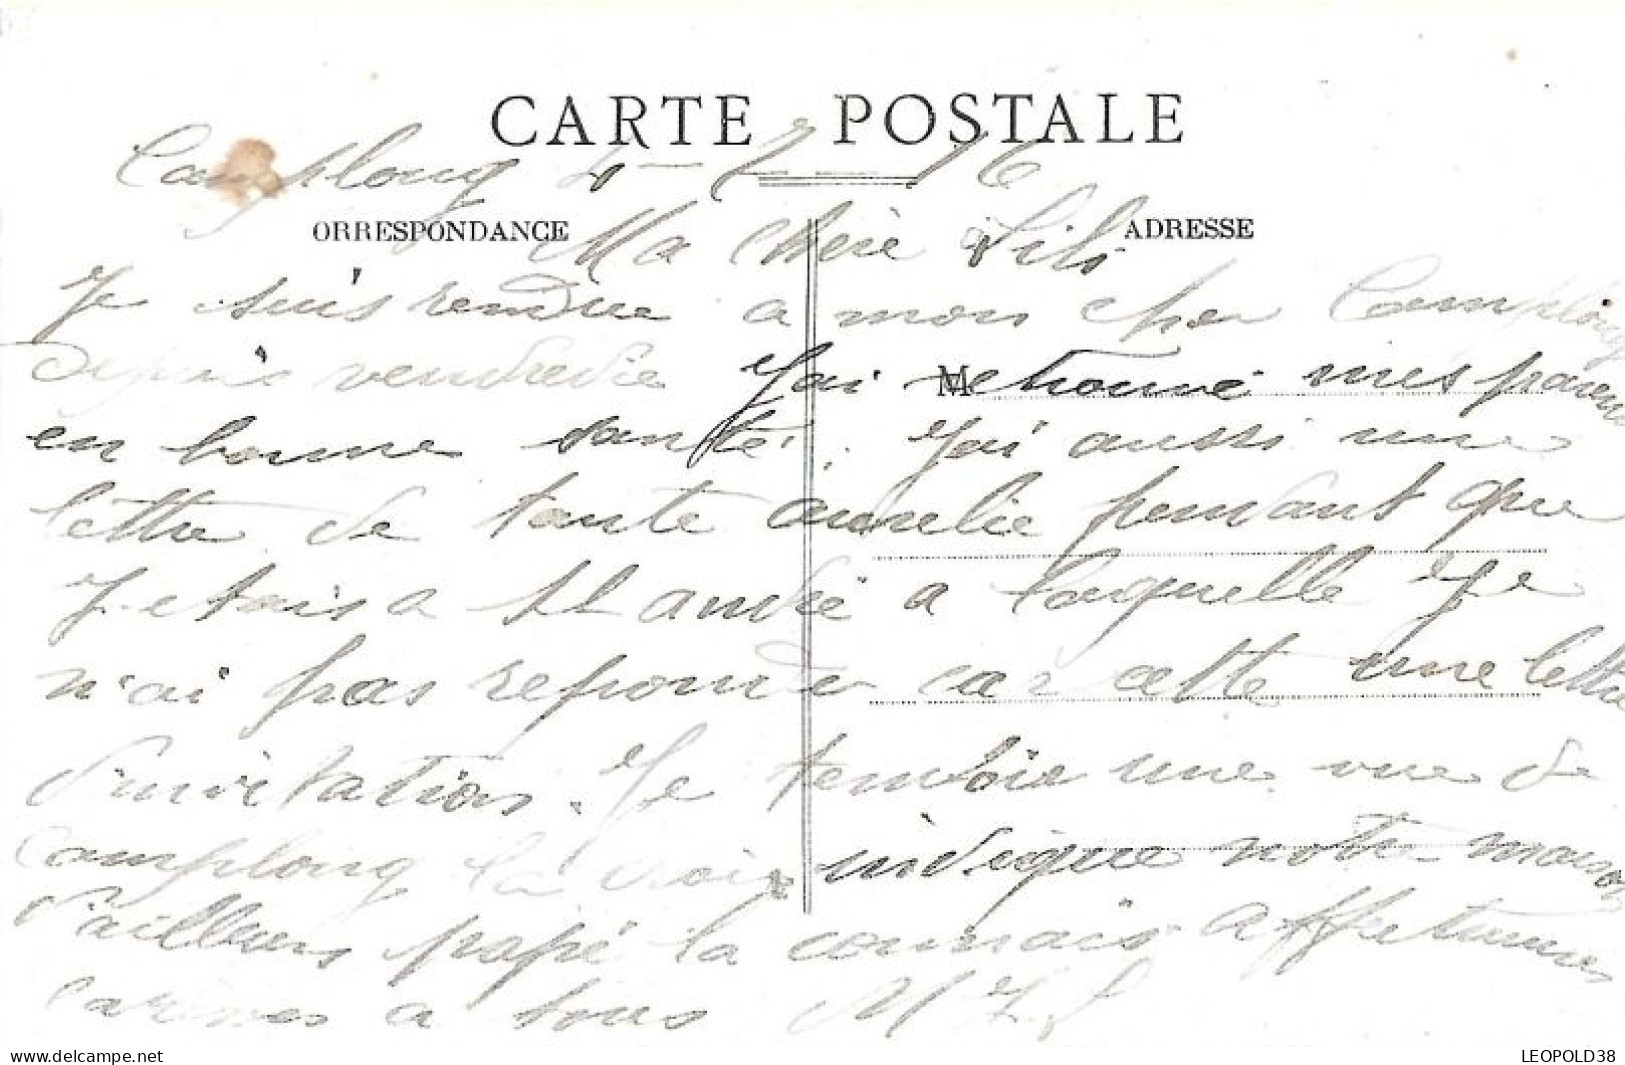 CARTE POSTALE
Camplong 4-2-16
ORRESPONDANCE
ADRESSE
Ma chère Lili
Je suis rendue a mon cher Camplong
depuis vendredie J'ai retrouvé mes parents
M
en bonne santé. J'ai aussi une
lettre de tante aurelie pendant que
J'etais a St André a laquelle Je
n'ai pas reponder car cette une lettre
d'invitation. Je t'envoie une vue de
Camplong la croix indique notre maison
d'ailleurs papé la connais affectueuses
caresses a tous M
www.delcampe.net
LEOPOLD38